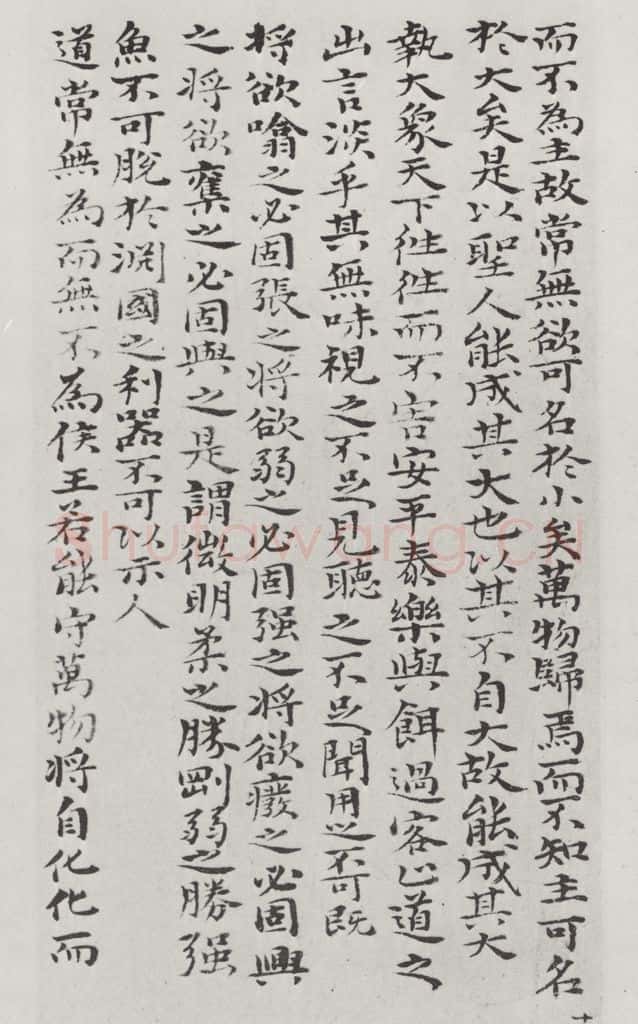 而不為主故常無欲可名於小矣萬物歸焉而不知主可名
於大矣是以聖人能成其大也以其不自大故能成其大
執大象天下往往而不害安平泰樂與餌過客止道之
出言淡乎其無味視之不足見聽之不足聞用之不可既
将欲噏之必固張之将欲弱之必固强之将欲癈之必固興
之将欲奪之必固與之是謂微明柔之勝剛弱之勝强
魚不可脫於渊國之利器不可以示人
道常無為而無不為侯王若能守萬物将自化化而
十
shufawang.cn